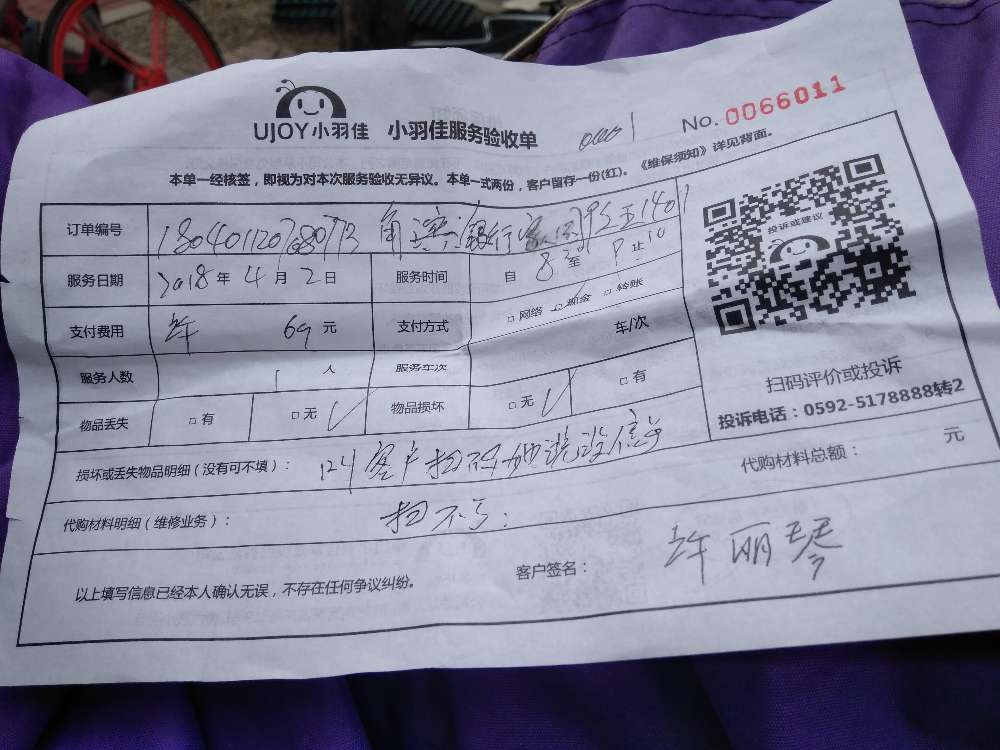 UJOY小羽佳 小羽佳服务验收单 No. 0066011
本单一经核签，即视为对本次服务验收无异议。本单一式两份，客户留存一份(红)。《维保须知》详见背面。
订单编号
服务日期 2018年4月2日 服务时间 自 8 至 止
支付费用 许 69元 支付方式 □网络 □现金 □转账
服务人数 1人 服务车次 车/次
物品丢失 □有 □无 √ 物品损坏 □无 √ □有
投诉或建议
扫码评价或投诉
投诉电话：0592-5178888转2
损坏或丢失物品明细（没有可不填）： 124客户扫码她说没信号
代购材料总额： 元
代购材料明细（维修业务）： 扫不了：
以上填写信息已经本人确认无误，不存在任何争议纠纷。 客户签名： 许丽琴